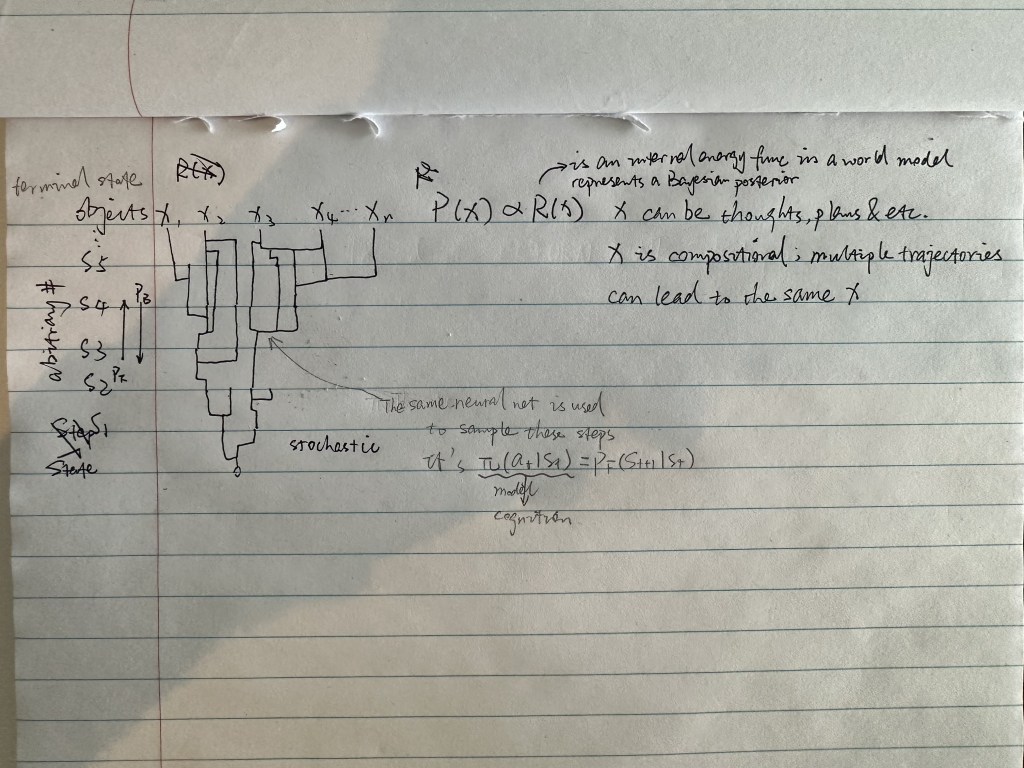 R(x)
→ is an internal energy func in a world model
represents a Bayesian posterior
terminal state
objects x₁ x₂ x₃ x₄ ... xₙ
P(x) ∝ R(x) x can be thoughts, plans & etc.
x is compositional; multiple trajectories
can lead to the same x
abitirary #
S5
S4
S3
S2
S1
P_B
P_F
Step
State
stochastic
The same neural net is used
to sample these steps
it's π(a_t|s_t) = P_F(s_{t+1}|s_t)
model
cognition